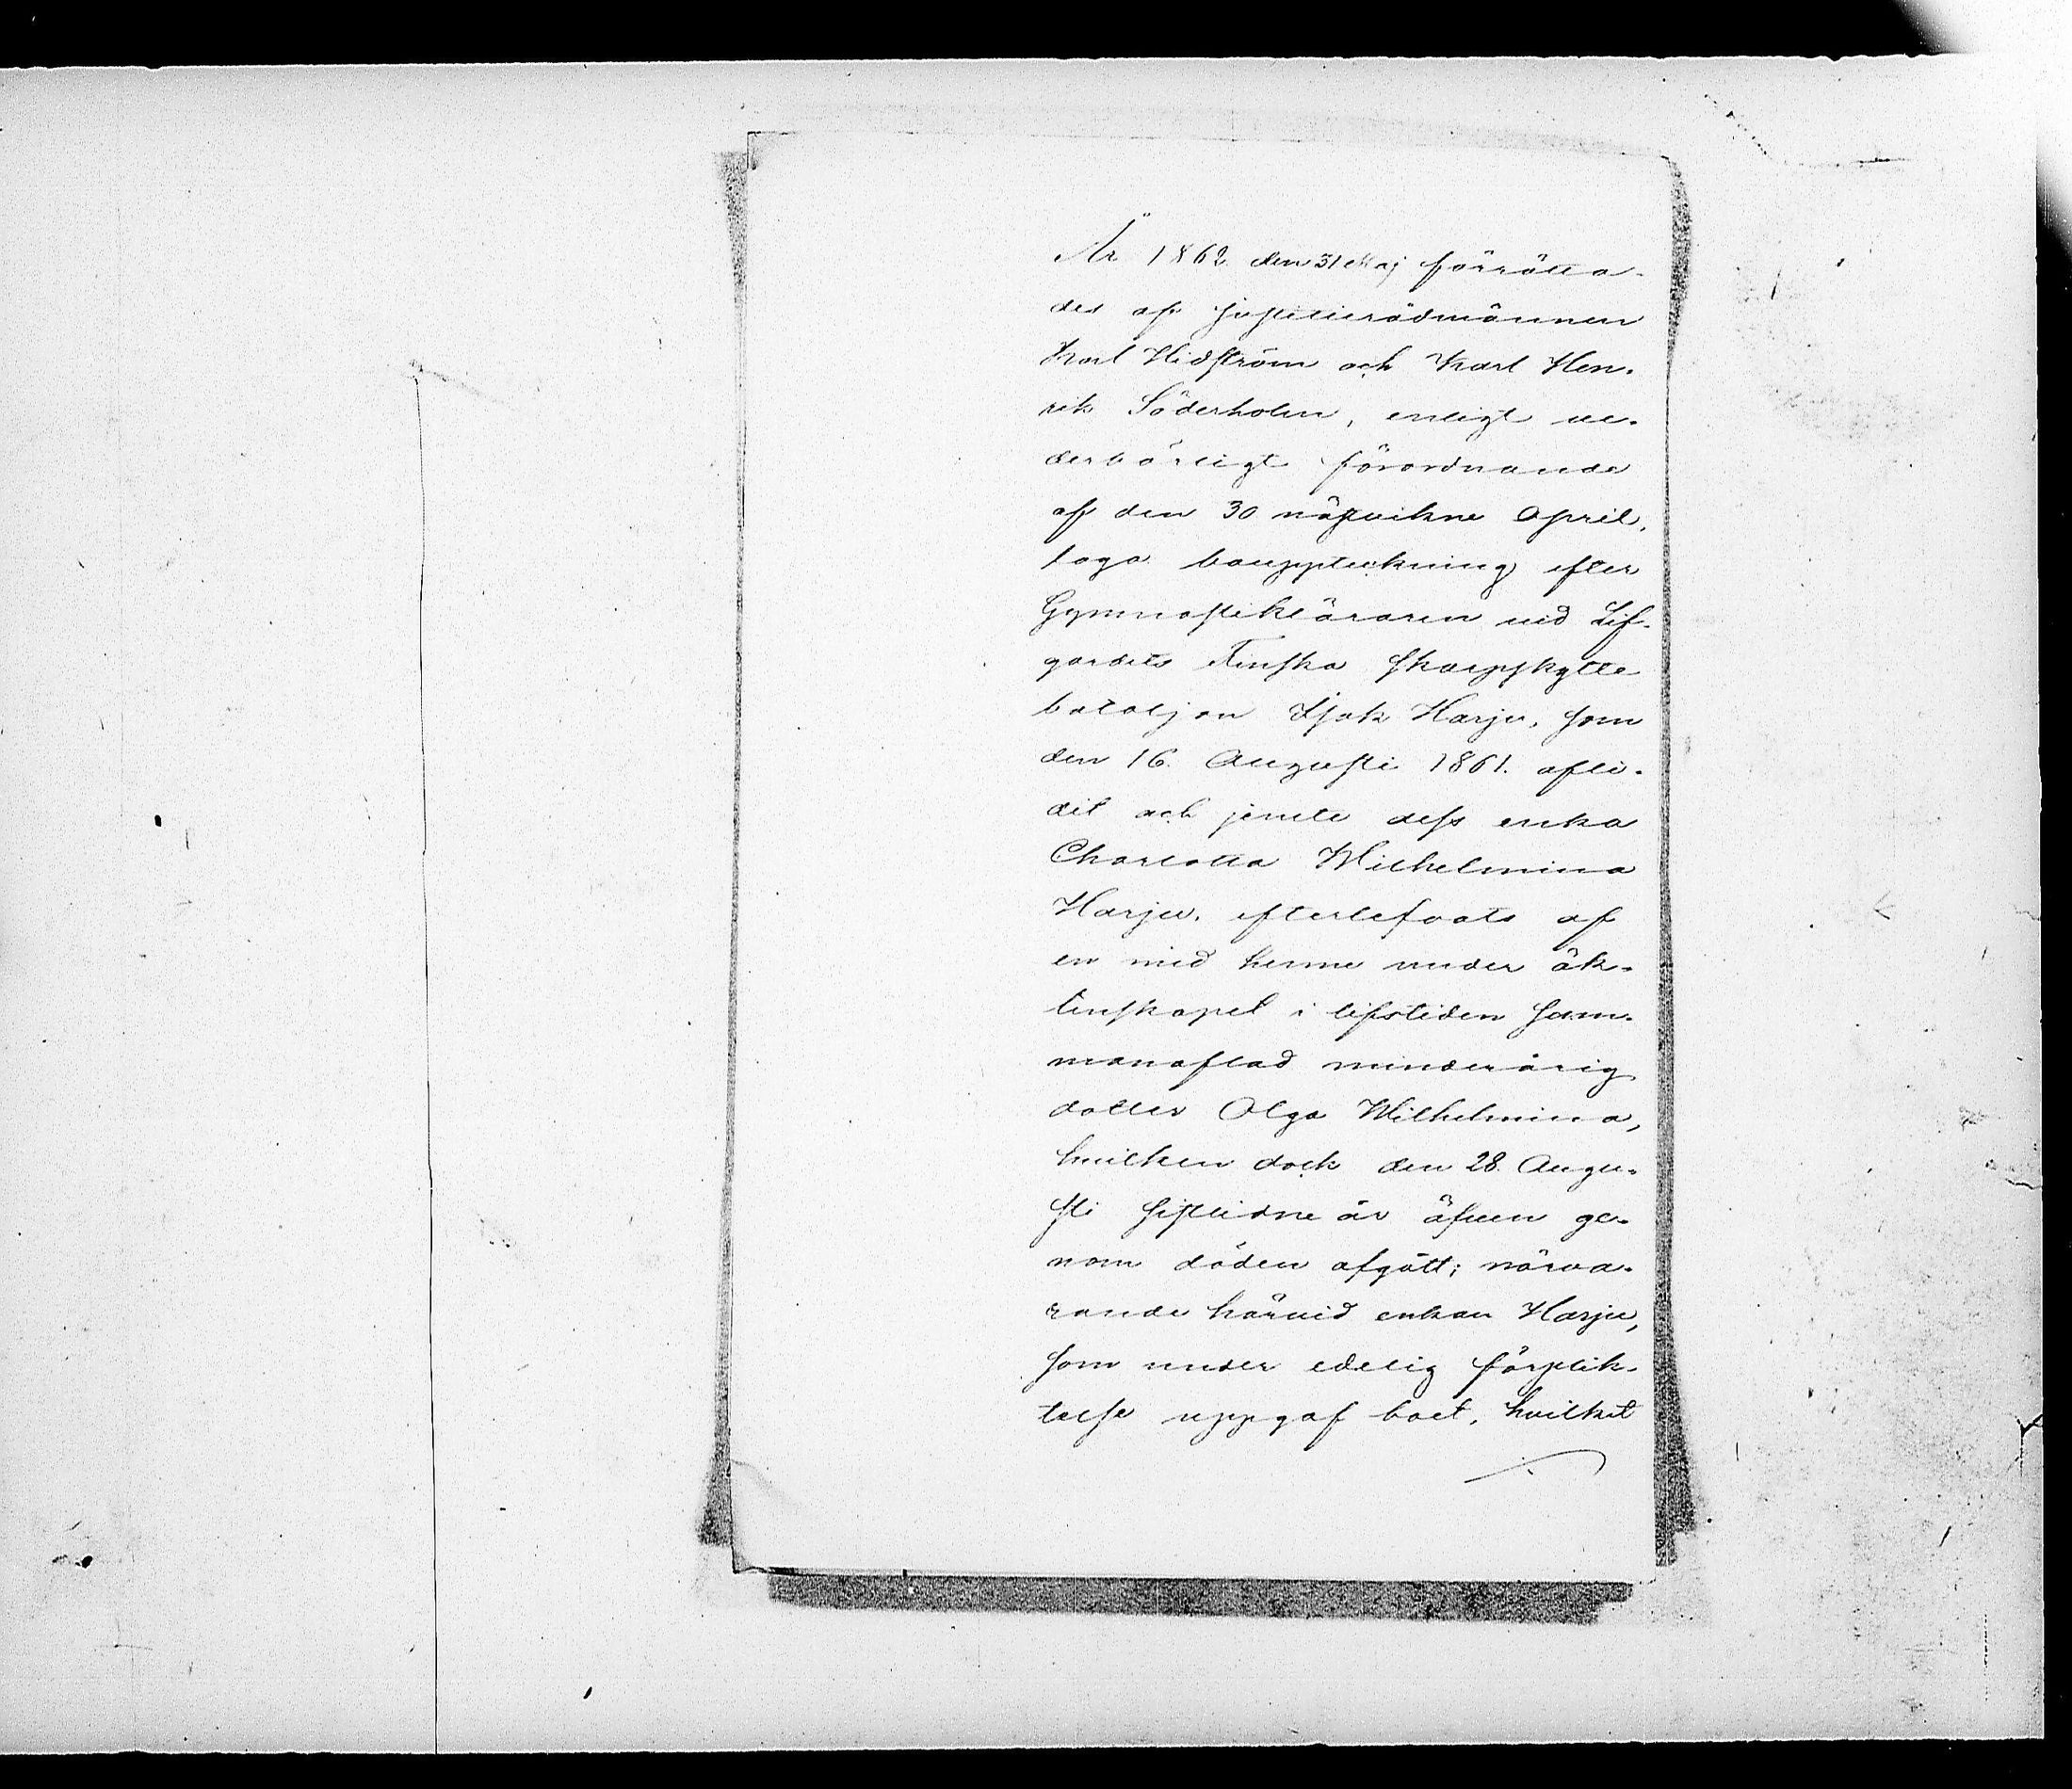 År 1862 den 31 Maj förrätta-
des af justitierådmännen
Karl Hidström och Karl Hen-
rik Söderholm, enligt ve-
derbörligt förordnande
af den 30 nästvikne April,
laga bouppteckning efter
Gymnastikläraren vid Lif-
gardets Finska skarpskytte
bataljon Isak Harju, som
den 16. Augusti 1861. afli-
dit och jemte dess enka
Charlotta Wilhelmina
Harju, efterlefvats af
en med henne under äk-
tenskapet i lifstiden sam-
manaflad minderårig
dotter Olga Wilhelmina,
hvilken dock den 28. Augu-
sti sistlidne år äfven ge-
nom döden afgått; närva-
rande härvid enkan Harju,
som under edelig förplik-
telse uppgaf boet, hvilket